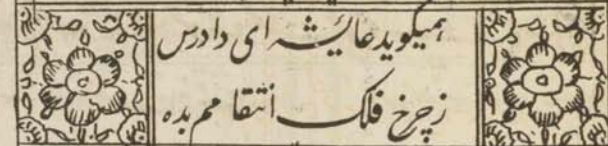 همیگوید عایشه ای دادرس
ز چرخ فلک انتقامم بده